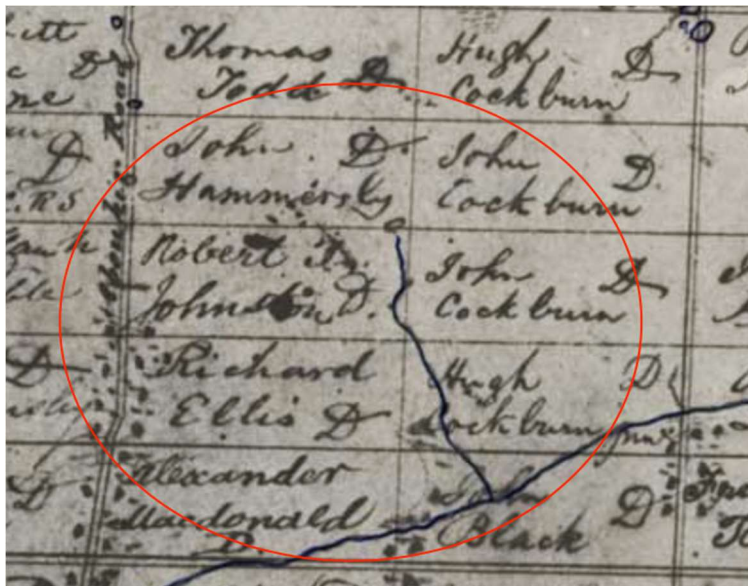 Thomas
Todd D
Hugh D
Cockburn
John D
Hammersly
John D
Cockburn
Robert
Johnston D.
John D
Cockburn
Richard
Ellis D
Hugh D
Cockburn
Alexander
Macdonald
D
John D
Black
Road
D
D
D